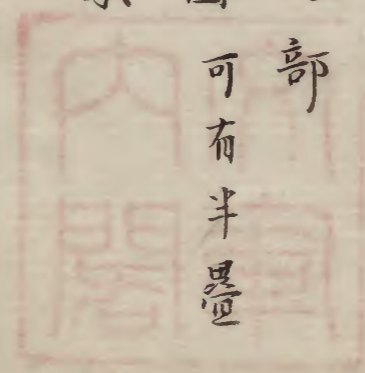 部
可有半疊
內閣